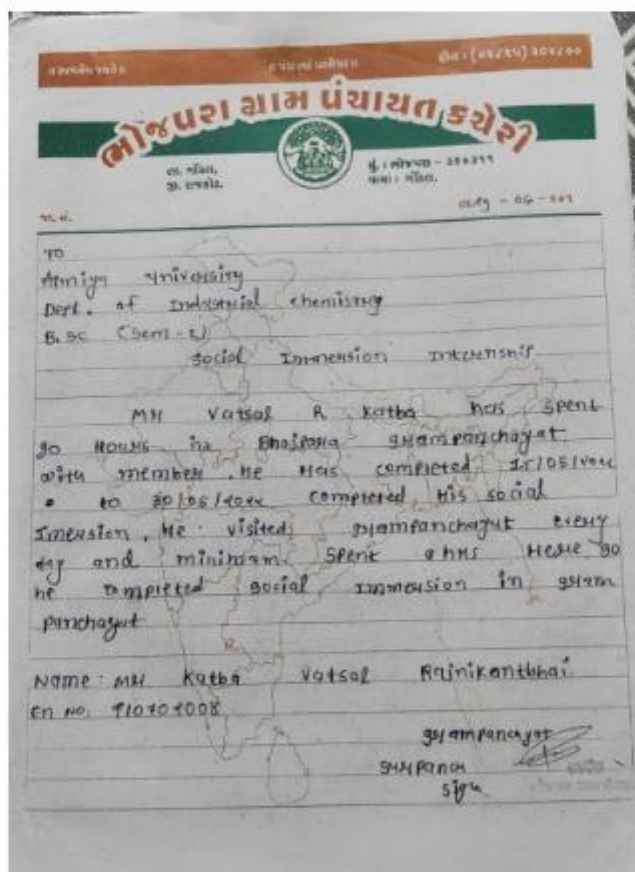 ભોજપરા ગ્રામ પંચાયત કચેરી
તા. ગોંડલ,
જી. રાજકોટ.
મુ. : ભોજપરા - ૩૬૦૩૧૧
વાયા : ગોંડલ.
જા. નં.
TO
Atmiya University
Dept. of Industrial chemistry
B. sc (sem-2)
Social Immersion Internship
MR Vatsal R Katba has spent
30 Hours in Bhojpara grampanchayat
with member. He Has completed 15/05/2022
to 30/05/2022 completed His social
Imersion. He visited grampanchayut every
day and minimam spent 2 hrs Here so
he completed social Immersion in gram
panchayut
Name : MR Katba Vatsal Rajnikantbhai
En No.
grampanchyat
sarpanch
sign